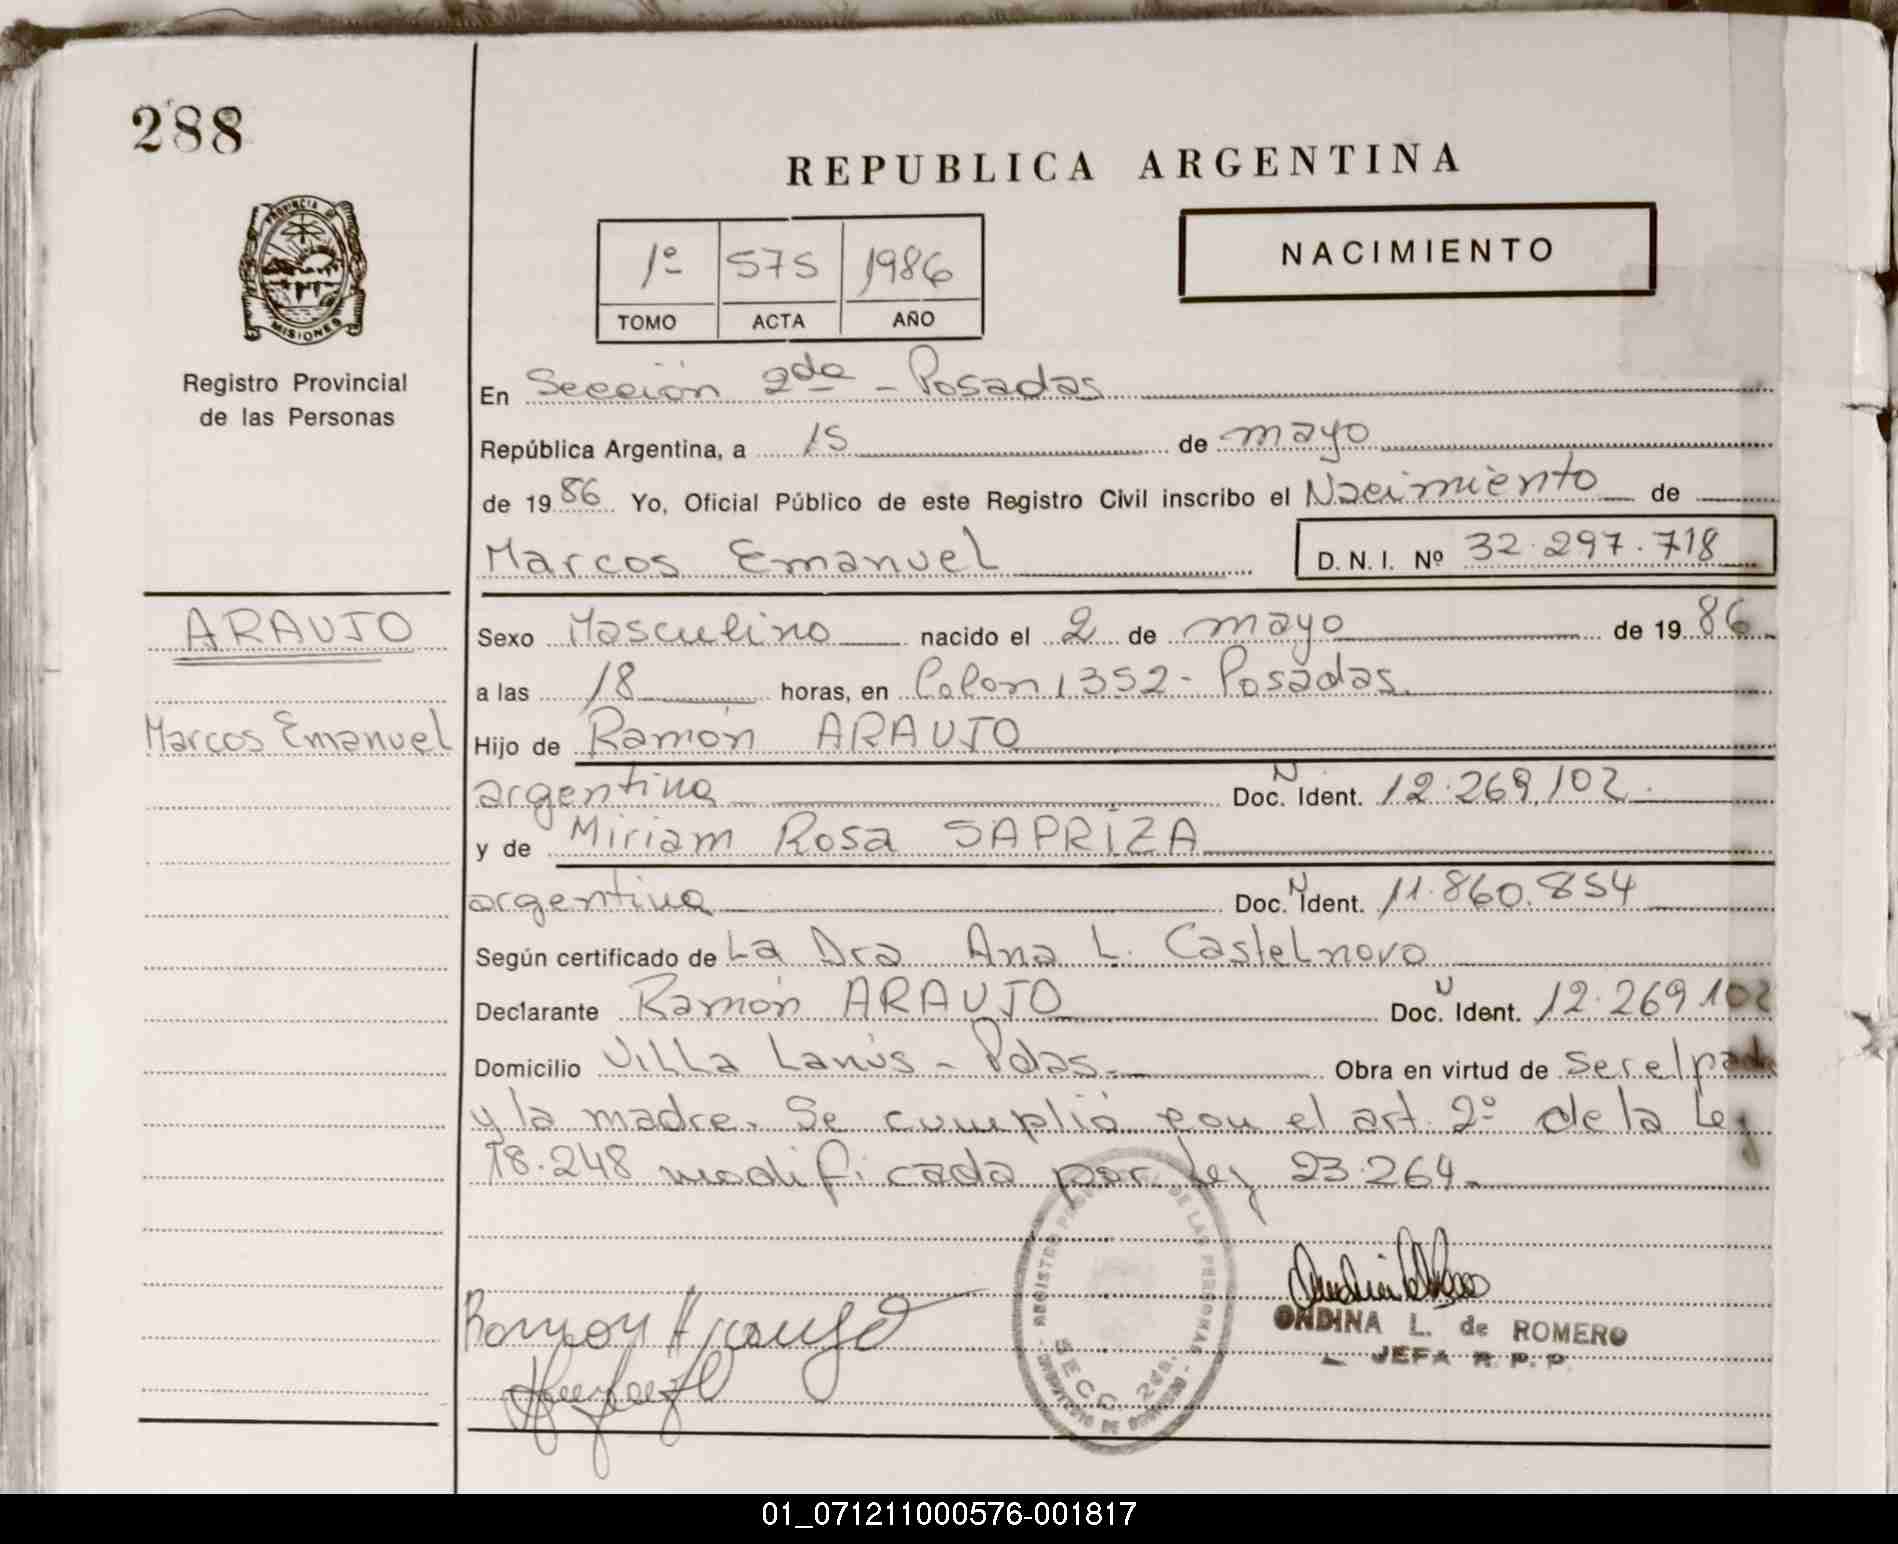 288
REPUBLICA ARGENTINA
PROVINCIA DE
MISIONES
Registro Provincial
de las Personas
1º 575 1986
TOMO ACTA AÑO
NACIMIENTO
En Sección 2da - Posadas
República Argentina, a 15 de mayo
de 1986 Yo, Oficial Público de este Registro Civil inscribo el Nacimiento de
Marcos Emanuel D. N. I. Nº 32.297.718
ARAUJO
Marcos Emanuel
Sexo Masculino nacido el 2 de mayo de 1986
a las 18 horas, en Colon 1352 - Posadas.
Hijo de Ramón ARAUJO
argentina Doc. N Ident. 12.269.102.
y de Miriam Rosa SAPRIZA
argentina Doc. N Ident. 11.860.854
Según certificado de La Dra Ana L. Castelnovo
Declarante Ramón ARAUJO Doc. N Ident. 12.269.102
Domicilio Villa Lanús - Pdas. Obra en virtud de ser el padre
y la madre. Se cumplió con el art. 2º de la Ley
18.248 modificada por Ley 23.264.
REGISTRO DE LAS PERSONAS
SECC. 2da.
Ramon Araujo
ONDINA L. de ROMERO
JEFA R. P. P.
01_071211000576-001817